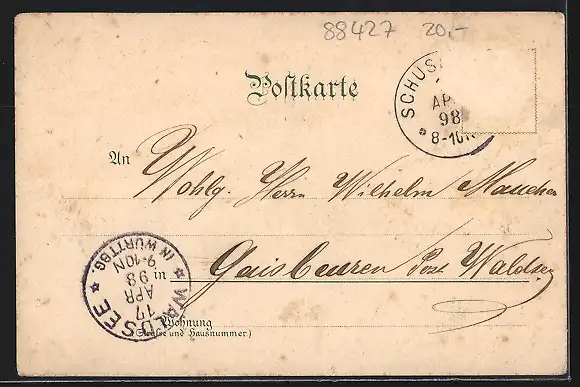 88427 20,-
Postkarte
SCHUS
AP
98
* 8-10N
An
Wohlg. Herrn Wilhelm Maucher
in Gaisbeuren Post Waldsee
* WALDSEE * IN WÜRTTBG.
17
APR
98
9-10N
Wohnung
(Straße und Hausnummer.)